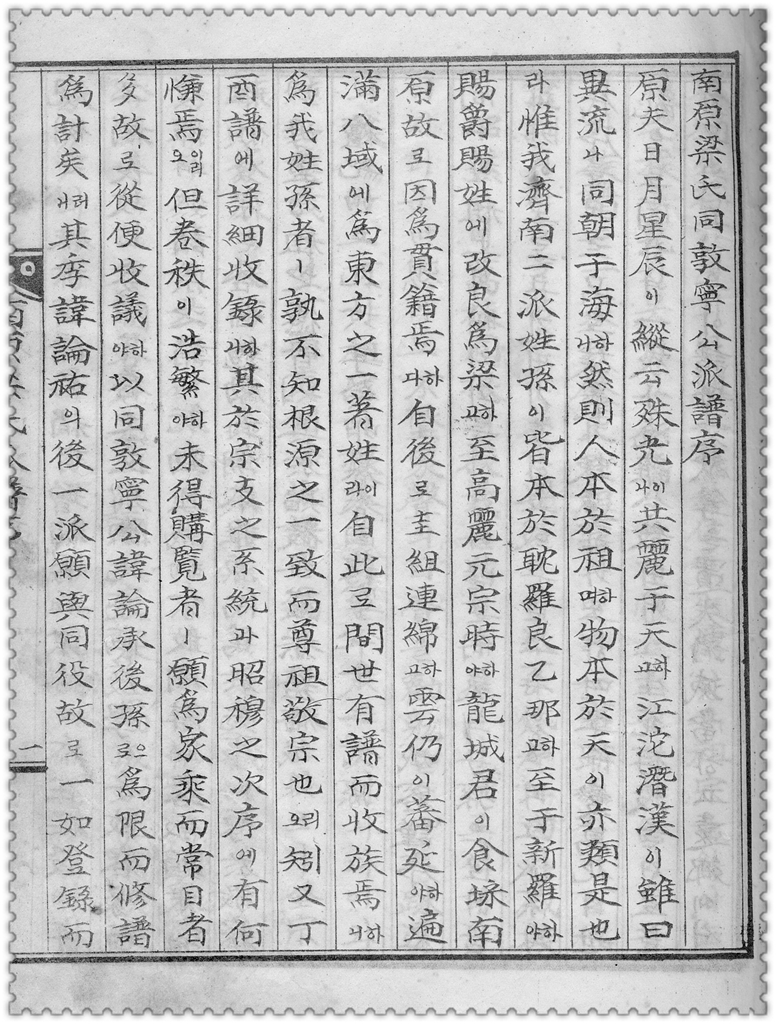 南原梁氏同敦寧公派譜序
原夫日月星辰이縱云殊光이나共麗于天하고江沱潛漢이雖曰
異流나同朝于海하나니然則人本於祖하며物本於天이亦類是也
라惟我濟南二派姓孫이皆本於耽羅良乙那하고至于新羅하야
賜爵賜姓에改良爲梁하고至高麗元宗時하야龍城君이食埰南
原故로因爲貫籍焉하다自後로圭組連綿하고雲仍이蕃延하야遍
滿八域에爲東方之一著姓이라自此로間世有譜而收族焉하니
爲我姓孫者ㅣ孰不知根源之一致而尊祖敬宗也리오矧又丁
酉譜에詳細收錄하니其於宗支之系統과昭穆之次序에有何
慊焉이리오但卷秩이浩繁하야未得購覽者ㅣ願爲家乘而常目者
多故로從便收議하야以同敦寧公諱論承後孫으로爲限而修譜
爲計矣러니其季諱論祐의後一派願與同役故로一如登錄而
一